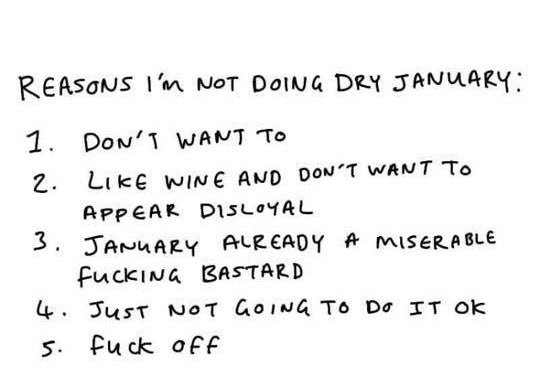 REASONS I'm NOT DOING DRY JANUARY:
1. DON'T WANT TO
2. LIKE WINE AND DON'T WANT TO
APPEAR DISLOYAL
3. JANUARY ALREADY A MISERABLE
fUCKING BASTARD
4. JUST NOT GOING TO DO IT OK
5. fuck off